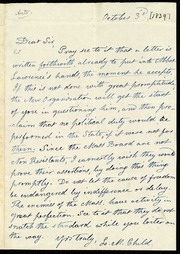 October 3d [1839]
Dear Sir,
Pray see to it that a letter is
written forthwith, already to put into
Lawrence's hands, the moment he accepts.
If this is not done with great promptitude,
the New Organization will get the start
of you in questioning him, and then pro-
claim that no political duty would be
performed in the State, if it were not for
them. Since the Mass. Board are not
Non Resistants, I earnestly wish they would
prove their assertions, by doing this thing
promptly. Do not let the cause of freedom
be endangered by indifference or delay.
The enemies of the Mass. have activity in
great perfection. See to it that they do not
snatch the standard while you loiter on
the way.
Yrs truly, L. M. Child.